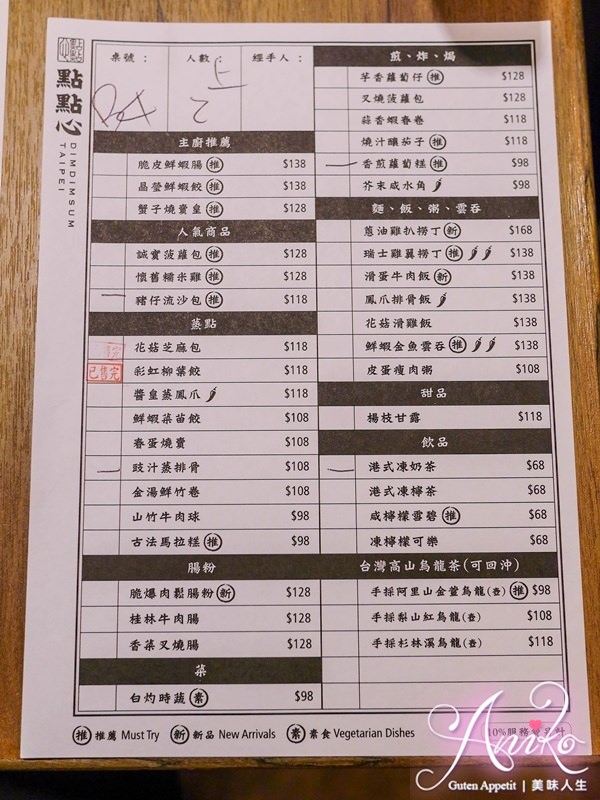 點點心
DIMDIMSUM
TAIPEI
桌號：
人數：
經手人：
2
主廚推薦
脆皮鮮蝦腸 推 $138
晶瑩鮮蝦餃 推 $138
蟹子燒賣皇 推 $128
人氣商品
誠實菠蘿包 推 $128
懷舊糯米雞 推 $128
豬仔流沙包 推 $118
蒸點
花菇芝麻包 $118
已售完 彩虹柳葉餃 $118
醬皇蒸鳳爪 $118
鮮蝦菜苗餃 $108
春蛋燒賣 $108
豉汁蒸排骨 $108
金湯鮮竹卷 $108
山竹牛肉球 $98
古法馬拉糕 推 $98
腸粉
脆爆肉鬆腸粉 新 $128
桂林牛肉腸 $128
香菜叉燒腸 $128
菜
白灼時蔬 素 $98
煎、炸、焗
芋香蘿蔔仔 推 $128
叉燒菠蘿包 $128
蒜香蝦春卷 $118
燒汁釀茄子 推 $118
香煎蘿蔔糕 推 $98
芥末咸水角 $98
麵、飯、粥、雲吞
蔥油雞扒撈丁 新 $168
瑞士雞翼撈丁 推 $138
滑蛋牛肉飯 新 $138
鳳爪排骨飯 $138
花菇滑雞飯 $138
鮮蝦金魚雲吞 推 $138
皮蛋瘦肉粥 $108
甜品
楊枝甘露 $118
飲品
港式凍奶茶 $68
港式凍檸茶 $68
咸檸檬雪碧 推 $68
凍檸檬可樂 $68
台灣高山烏龍茶(可回沖)
手採阿里山金萱烏龍(壺) 推 $98
手採梨山紅烏龍(壺) $108
手採杉林溪烏龍(壺) $118
推 推薦 Must Try 新 新品 New Arrivals 素 素食 Vegetarian Dishes
10%服務費另計
Aniko
Guten Appetit | 美味人生